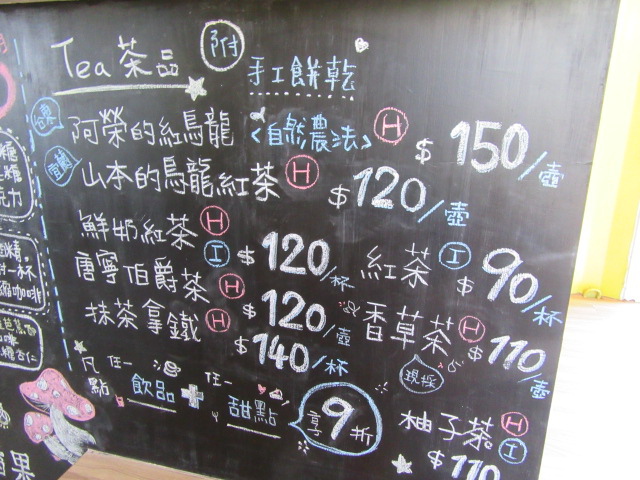 Tea 茶品 附 手工餅乾
台東 阿榮的紅烏龍 <自然農法> H $150/壺
宜蘭 山本的烏龍紅茶 H $120/壺
鮮奶紅茶 H I $120/杯
紅茶 I $90/杯
唐寧伯爵茶 H $120/壺
香草茶 H $110/壺
現採
抹茶拿鐵 H $140/杯
凡點 任一飲品 + 任一甜點 享9折
柚子茶 H I
$110